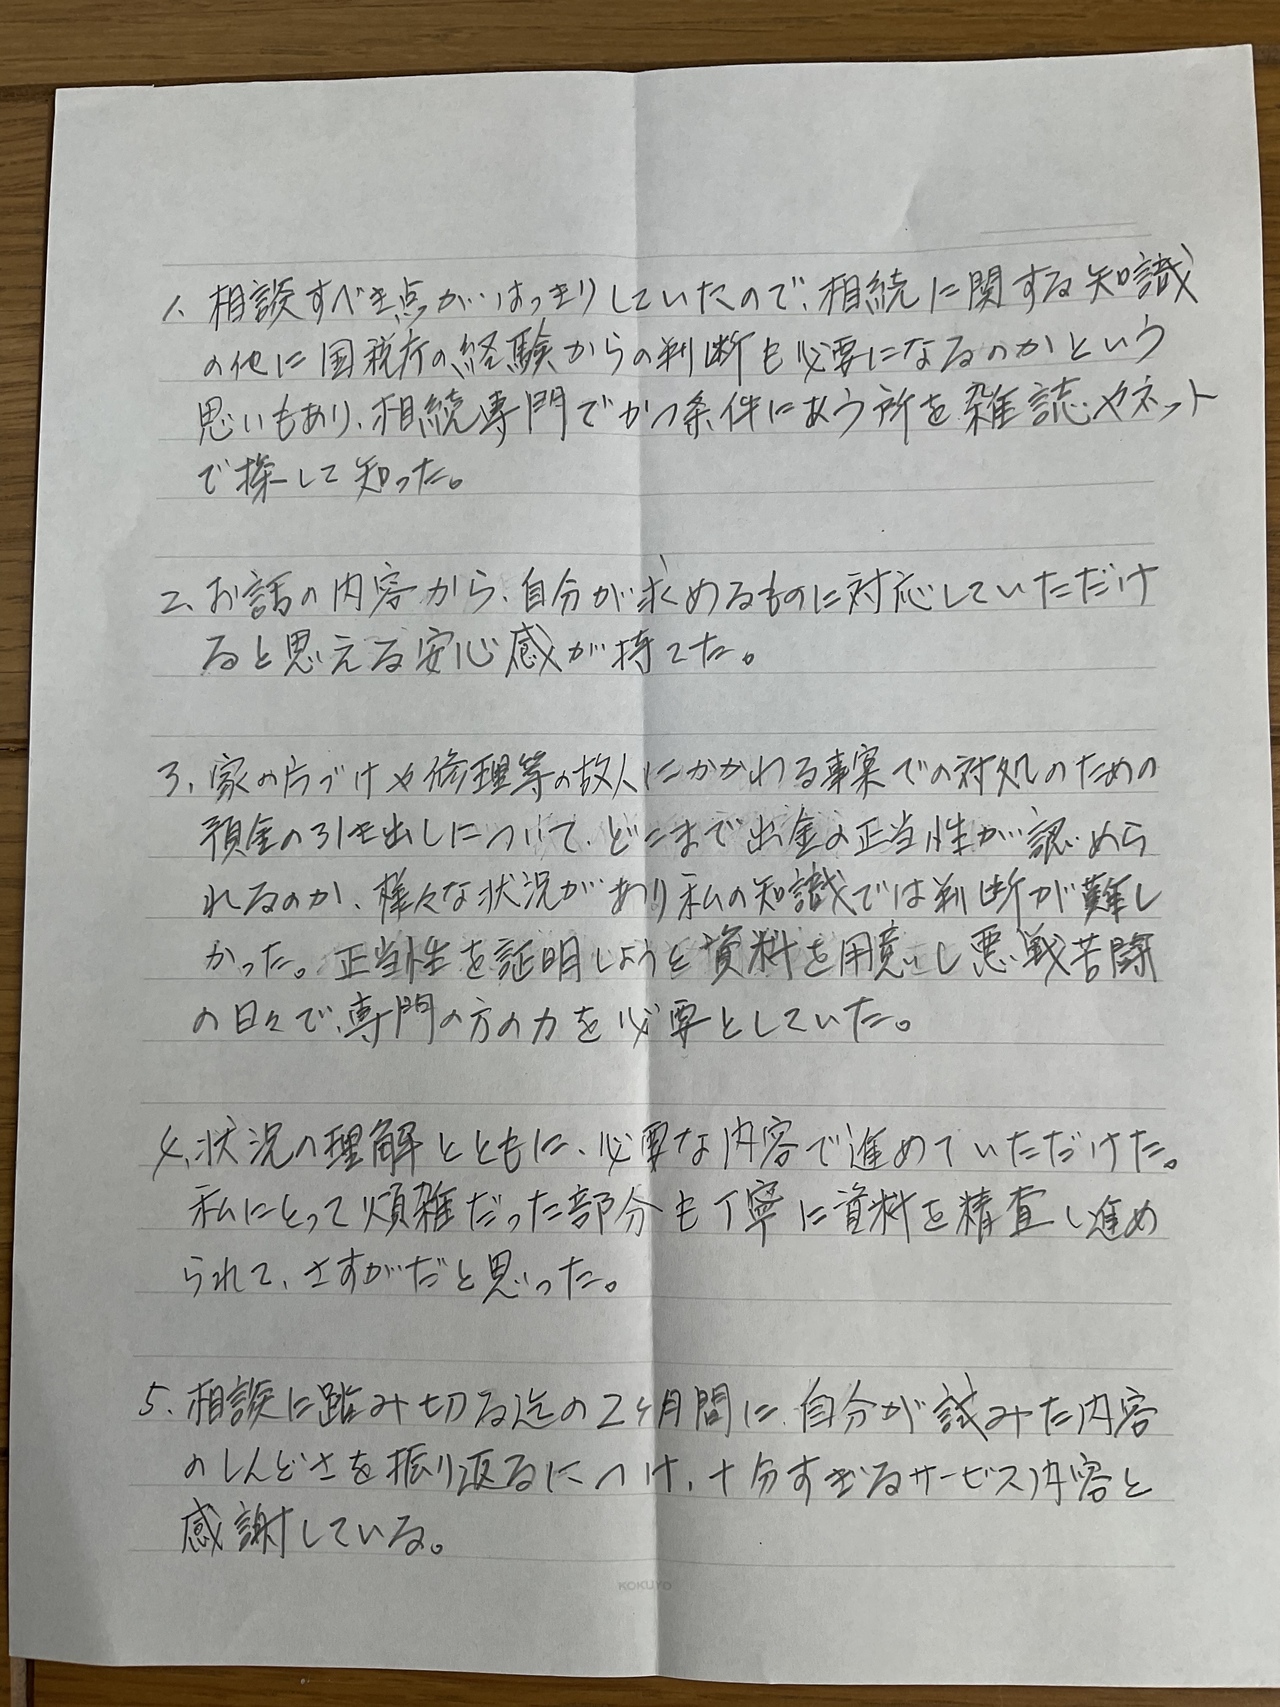 1. 相談すべき点がはっきりしていたので、相続に関する知識
の他に国税庁の経験からの判断も必要になるのかという
思いもあり、相続専門でかつ条件にあう所を雑誌やネット
で探して知った。
2. お話の内容から、自分が求めるものに対応していただけ
ると思える安心感が持てた。
3. 家の片づけや修理等の故人にかかわる事案での対処のための
預金の引き出しについて、どこまで出金の正当性が認められ
れるのか、様々な状況があり私の知識では判断が難し
かった。正当性を証明しようと資料を用意し悪戦苦闘
の日々で、専門の方の力を必要としていた。
4. 状況の理解とともに、必要な内容で進めていただけた。
私にとって煩雑だった部分も丁寧に資料を精査し進め
られて、さすがだと思った。
5. 相談に踏み切る迄の2ヶ月間に、自分が試みた内容
のしんどさを振り返るにつけ、十分すぎるサービス内容と
感謝している。
KOKUYO